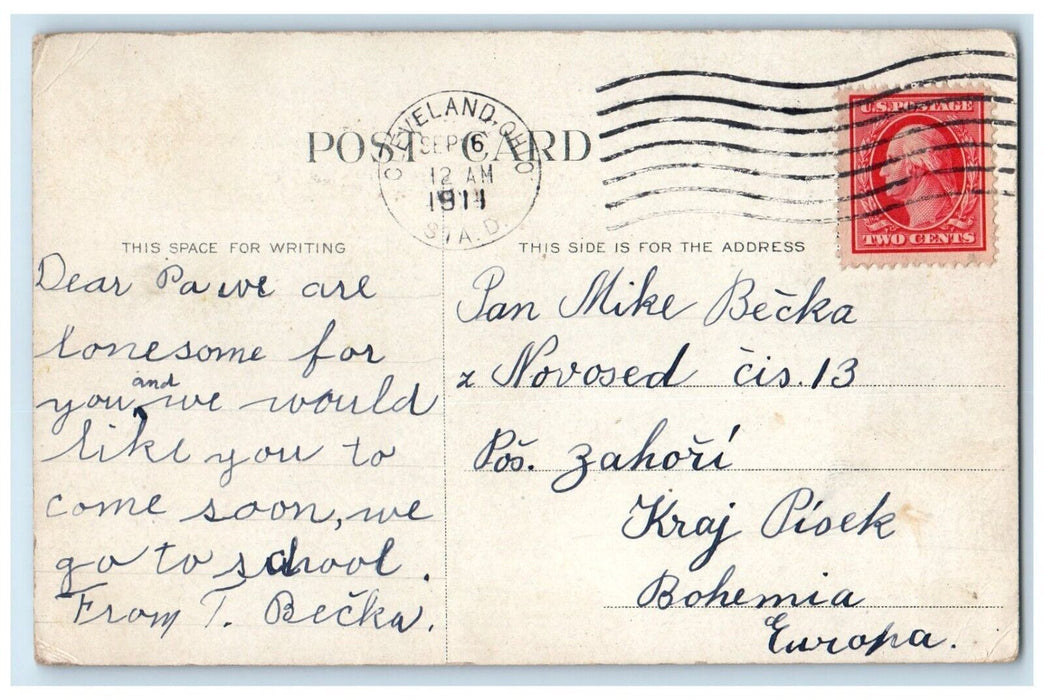 POST CARD
CLEVELAND, OHIO
SEP 6
12 AM
1911
STA. D.
U.S. POSTAGE
TWO CENTS
THIS SPACE FOR WRITING
Dear Pa we are
lonesome for
you, and we would
like you to
come soon, we
go to school.
From T. Bečka.
THIS SIDE IS FOR THE ADDRESS
Pan Mike Bečka
z Novosed čis. 13
Pos. Zahoří
Kraj Písek
Bohemia
Europa.